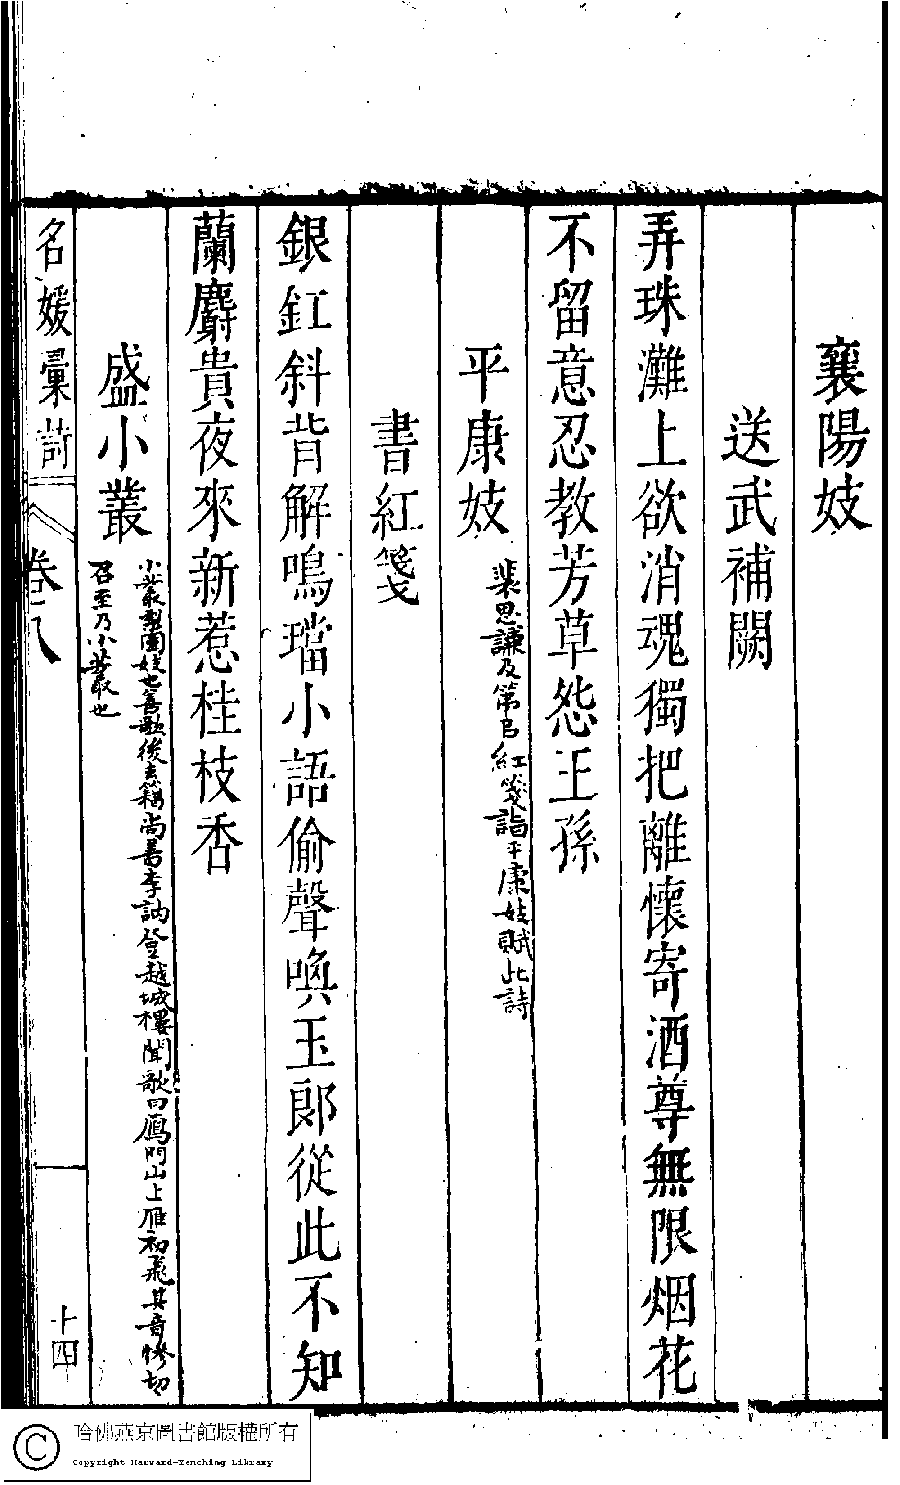 襄陽妓
送武補闕
弄珠灘上欲消魂獨把離懷寄酒尊無限烟花
不留意忍教芳草怨王孫
平康妓
裴思謙及第官紅箋詣平康妓賦此詩
書紅箋
銀釭斜背解鳴璫小語偷聲喚玉郎從此不知
蘭麝貴夜來新惹桂枝香
盛小叢
小叢梨園妓也善歌後去籍尚書李訥登越城樓聞歌曰鴈門山上雁初飛其音慘切
召至乃小叢也
名媛彙詩
卷八
十四
哈佛燕京圖書館版權所有
Copyright Harvard-Yenching Library